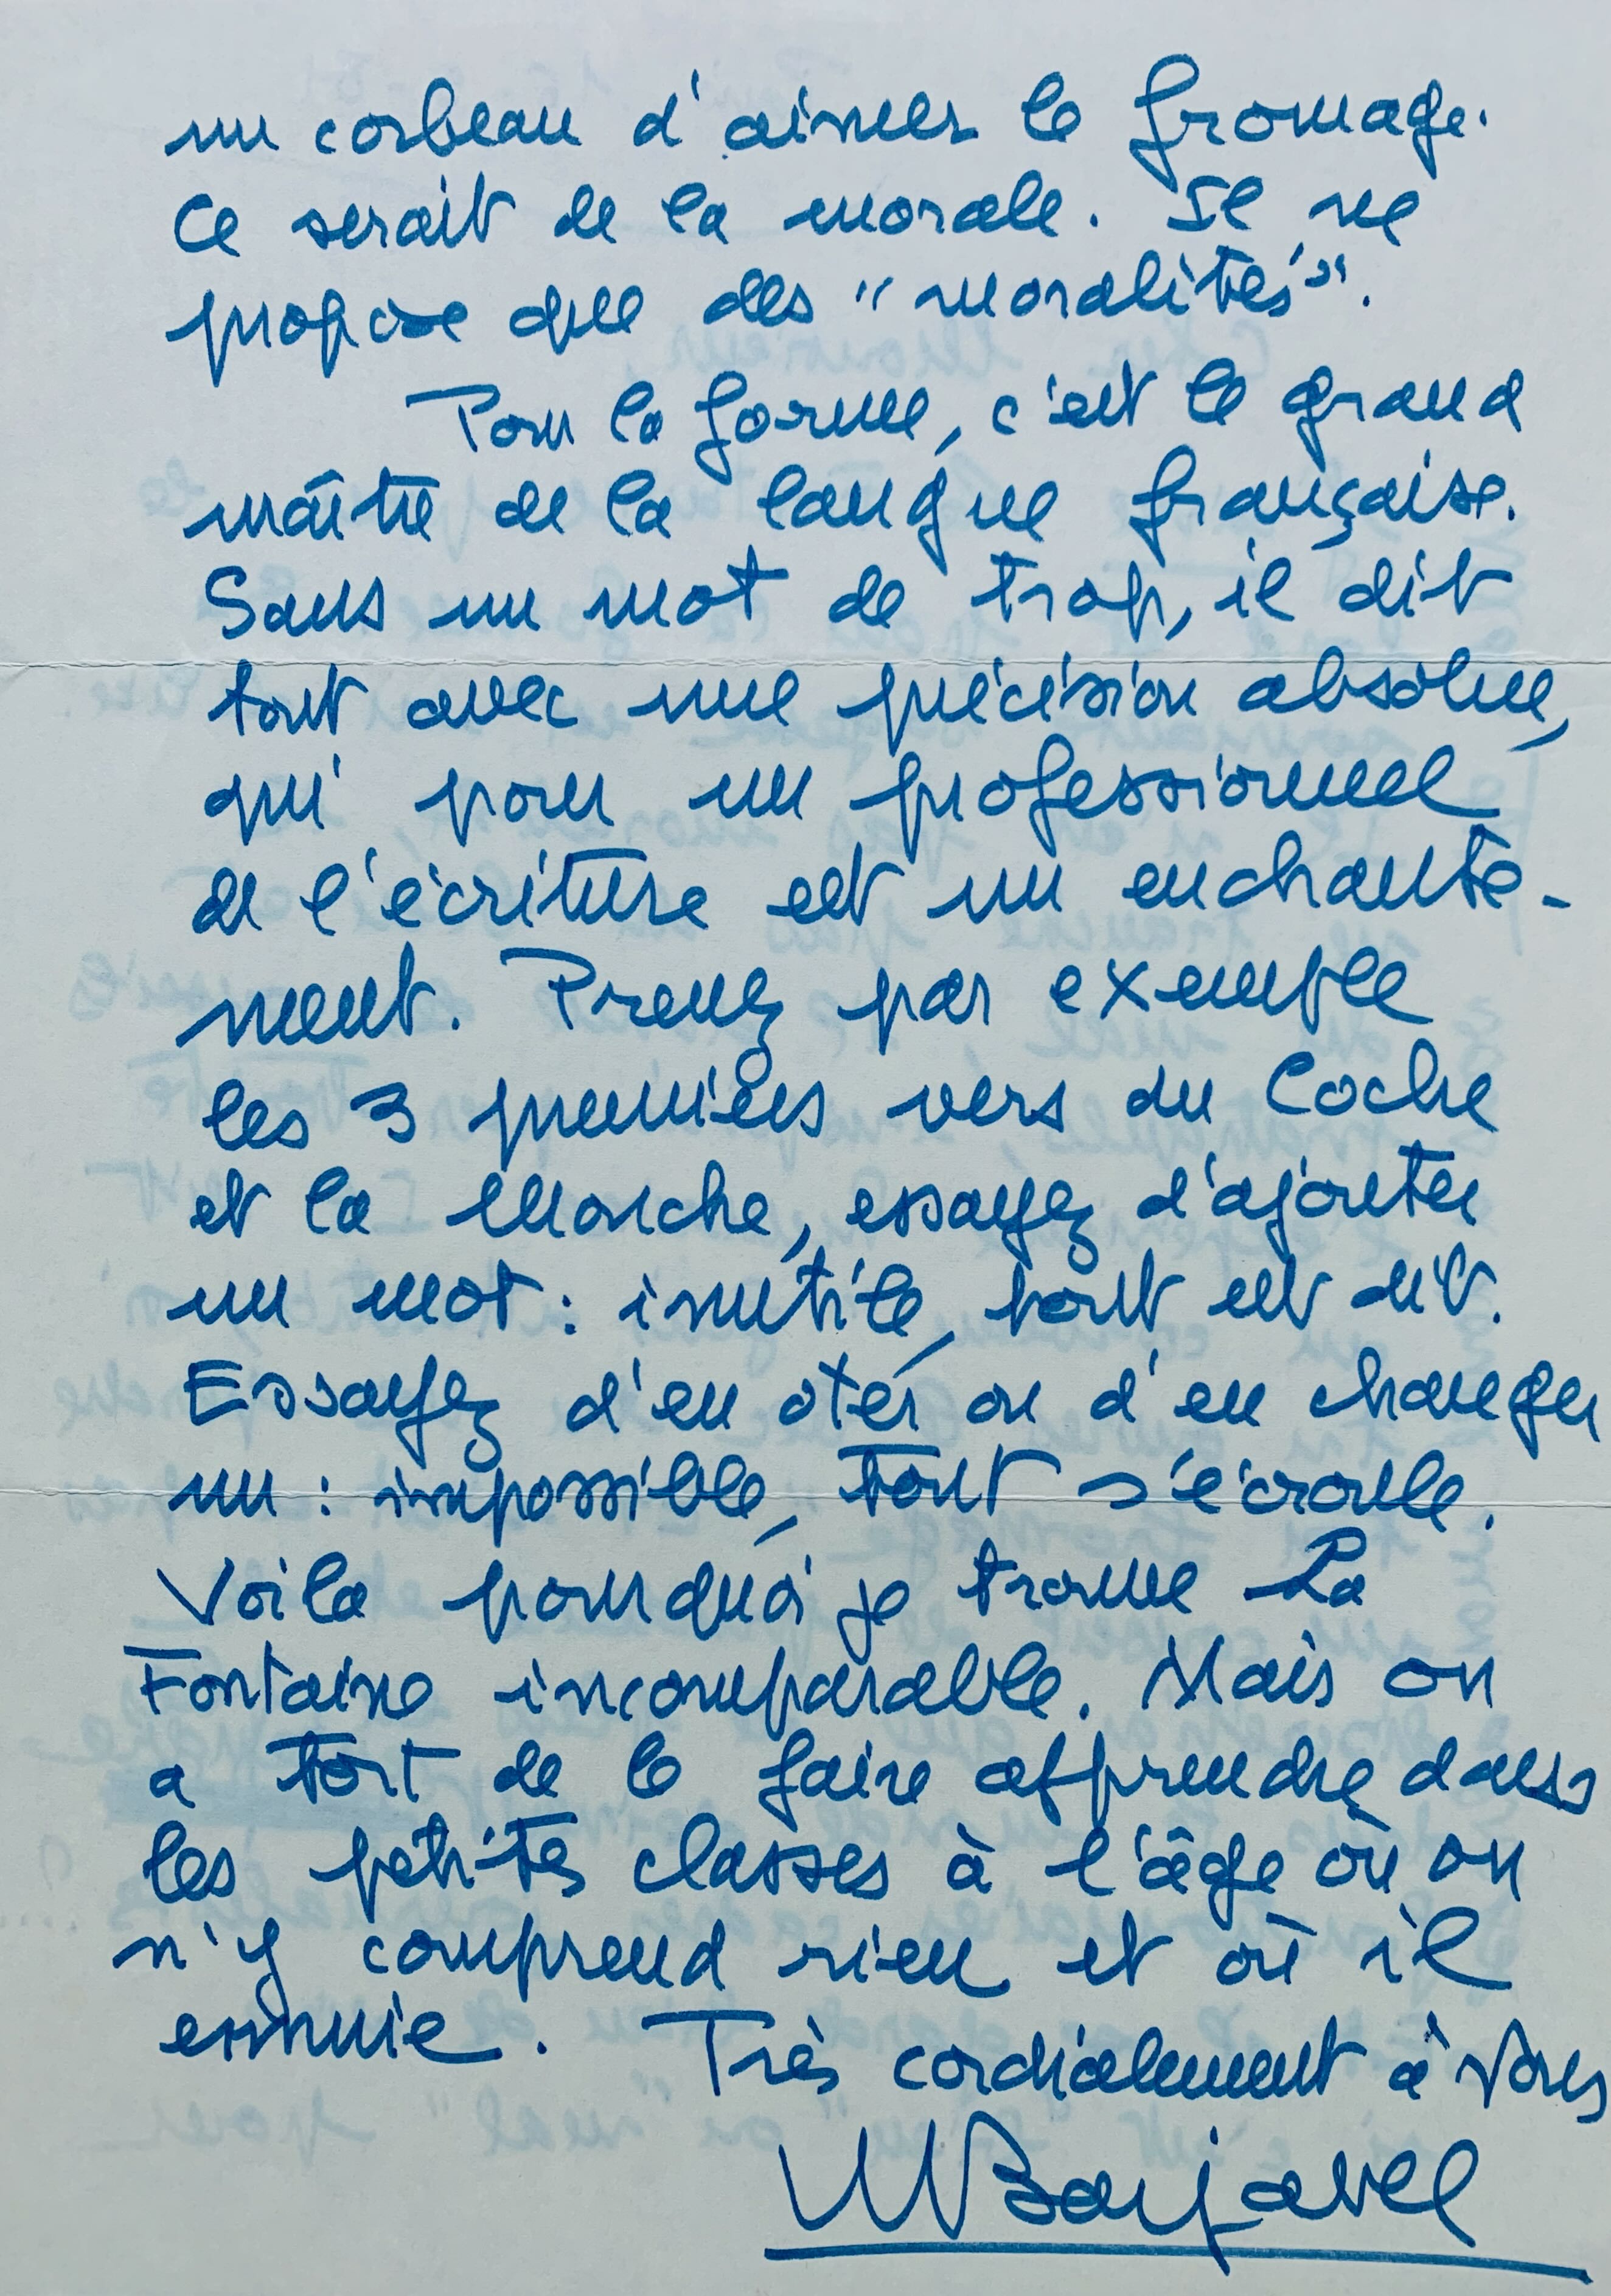 un corbeau d'aimer le fromage.
Ce serait de la morale. Il ne
propose que des "moralités".
Pour la forme, c'est le grand
maître de la langue française.
Sans un mot de trop, il dit
tout avec une précision absolue,
qui pour un professionnel
de l'écriture est un enchante-
ment. Prenez par exemple
les 3 premiers vers du Coche
et la Mouche, essayez d'ajouter
un mot : inutile, tout est dit.
Essayez d'en oter ou d'en changer
un : impossible, tout s'écroule.
Voila pourquoi je trouve La
Fontaine incomparable. Mais on
a tort de le faire apprendre dans
les petites classes à l'âge où on
n'y comprend rien et où il
ennuie. Très cordialement à vous
Barjavel